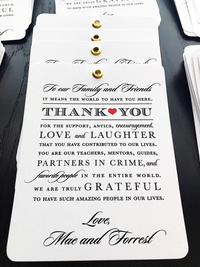 To our Family and Friends
IT MEANS THE WORLD TO HAVE YOU HERE.
THANK YOU
FOR THE SUPPORT, ANTICS, encouragement,
LOVE and LAUGHTER
THAT YOU HAVE CONTRIBUTED TO OUR LIVES.
YOU ARE OUR TEACHERS, MENTORS, GUIDES,
PARTNERS IN CRIME, and
favorite people IN THE ENTIRE WORLD.
WE ARE TRULY GRATEFUL
TO HAVE SUCH AMAZING PEOPLE IN OUR LIVES.
Love,
Mae and Forrest